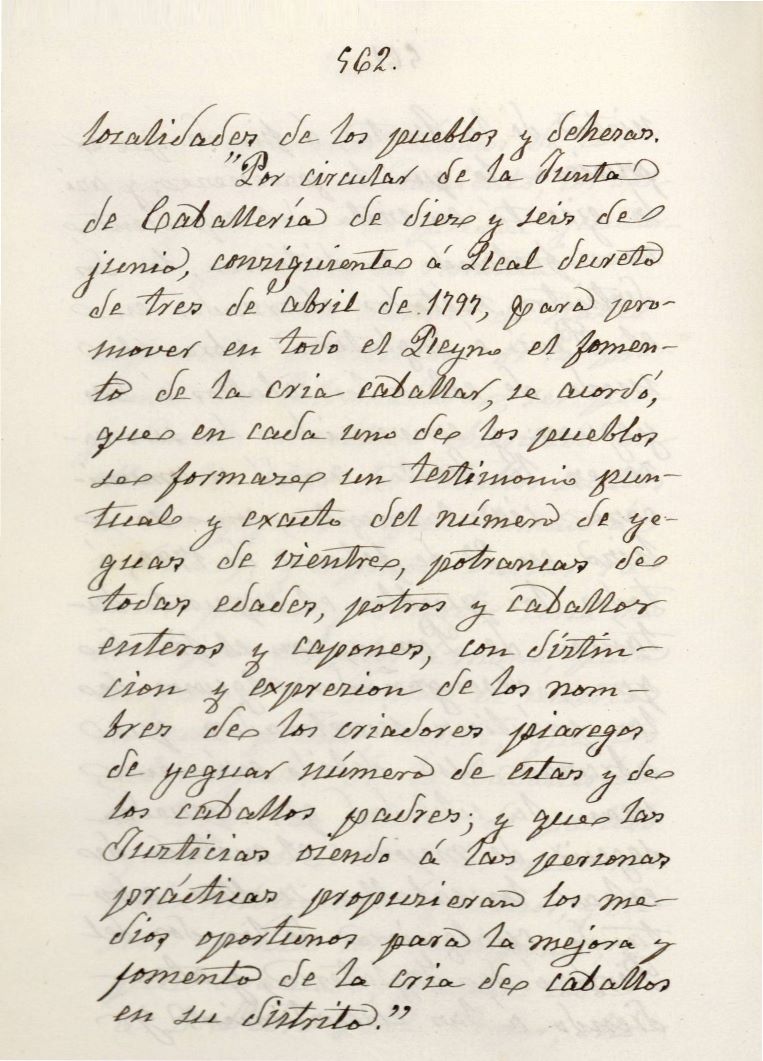 562.
localidades de los pueblos y dehesas.
"Por circular de la Junta
de Caballería de diez y seis de
junio, consiguiente á Real decreto
de tres de abril de 1797, para pro-
mover en todo el Reyno el fomen-
to de la cria caballar, se acordó,
que en cada uno de los pueblos
se formase un testimonio pun-
tual y exacto del número de ye-
guas de vientre, potrancas de
todas edades, potros y caballos
enteros y capones, con distin-
cion y expresion de los nom-
bres de los criadores piaregos
de yeguas número de estas y de
los caballos padres; y que las
Justicias oiendo á las personas
prácticas propusieran los me-
dios oportunos para la mejora y
fomento de la cria de caballos
en su distrito."